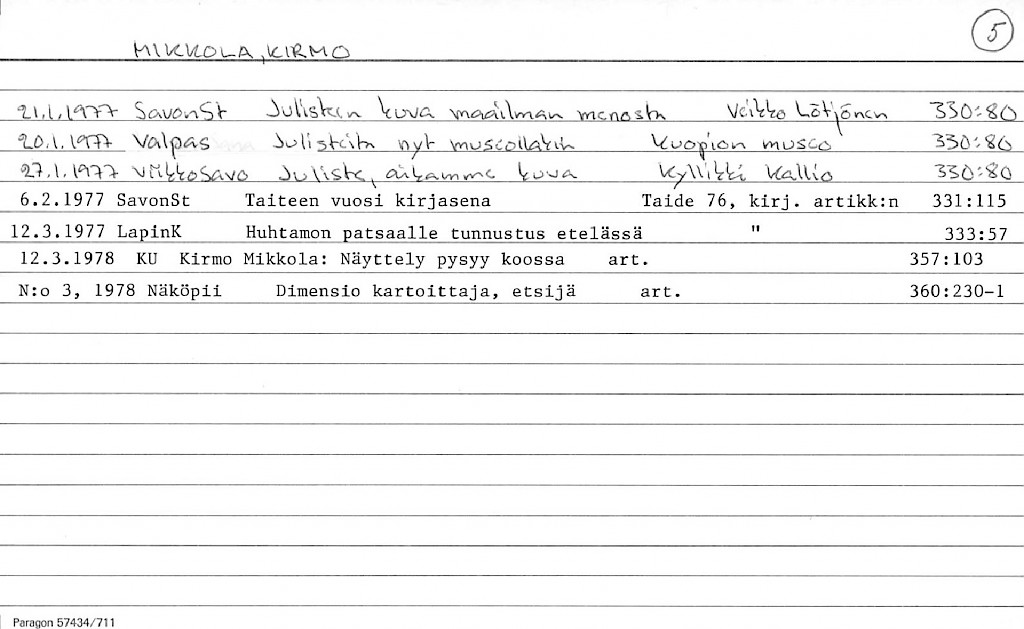 5
MIKKOLA, KIRMO
21.1.1977 SavonSt Julisteen kuva maailman menosta Veikko Lötjönen 330:80
20.1.1977 Valpas Julisteita nyt museoillakin Kuopion museo 330:80
27.1.1977 ViikkoSavo Juliste, aikamme kuva Kyllikki Kallio 330:80
6.2.1977 SavonSt Taiteen vuosi kirjasena Taide 76, kirj. artikk:n 331:115
12.3.1977 LapinK Huhtamon patsaalle tunnustus etelässä " 333:57
12.3.1978 KU Kirmo Mikkola: Näyttely pysyy koossa art. 357:103
N:o 3, 1978 Näköpii Dimensio kartoittaja, etsijä art. 360:230-1
Paragon 57434/711